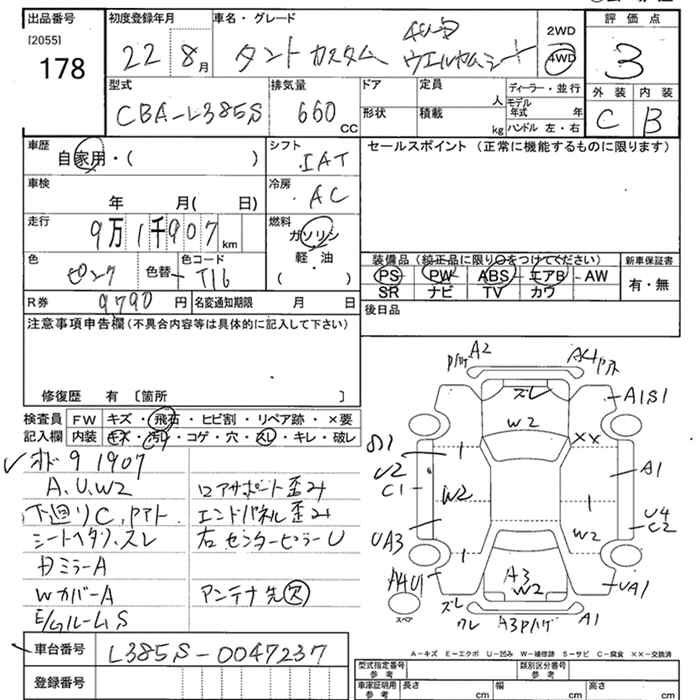 出品番号 初度登録年月 車名・グレード 2WD 評価点
[2055] 178 22 8月 タント カスタム ウエルカムシート 4WD 3
型式 排気量 ドア 定員 人 ディーラー・並行 外装 内装
CBA-L385S 660 CC 形状 積載 kg モデル年式 年 C B
ハンドル 左・右
車歴 シフト セールスポイント (正常に機能するものに限ります)
自家用・( ) IAT
車検 冷房
年 月( 日) AC
走行 燃料
9万1千907km ガソリン
色 色替 色コード 軽・油 装備品(純正品に限り○をつけてください) 新車保証書
ピンク T16 ( ) PS PW ABS エアB AW 有・無
R券 9790円 名変通知期限 月 日 SR ナビ TV カワ
注意事項申告欄(不具合内容等は具体的に記入して下さい) 後日品
修復歴 有 〔箇所 〕
検査員 FW キズ・飛石・ヒビ割・リペア跡・×要
記入欄 内装 キズ・汚レ・コゲ・穴・スレ・キレ・破レ
9 1907
A,U,W2 ロアサポート歪み
下回りC, エンドパネル歪み
シートヘタリ,スレ 右センターピラーU
ミラーA
WカバーA アンテナ先欠
E/GルームS
車台番号 L385S-0047237
登録番号
A2 A4
ズレ A1S1
W2
XX
81
U2
C1
W2
A1
U4
C2
W2
UA3
A4U1
A3
W2
UA1
スペア
ズレ
ワレ
A3
A1
A-キズ E-エクボ U-凹み W-補修跡 S-サビ C-腐食 XX-交換済
型式指定番号 参考 類別区分番号 参考
車庫証明用 参考 長さ cm 幅 cm 高さ cm